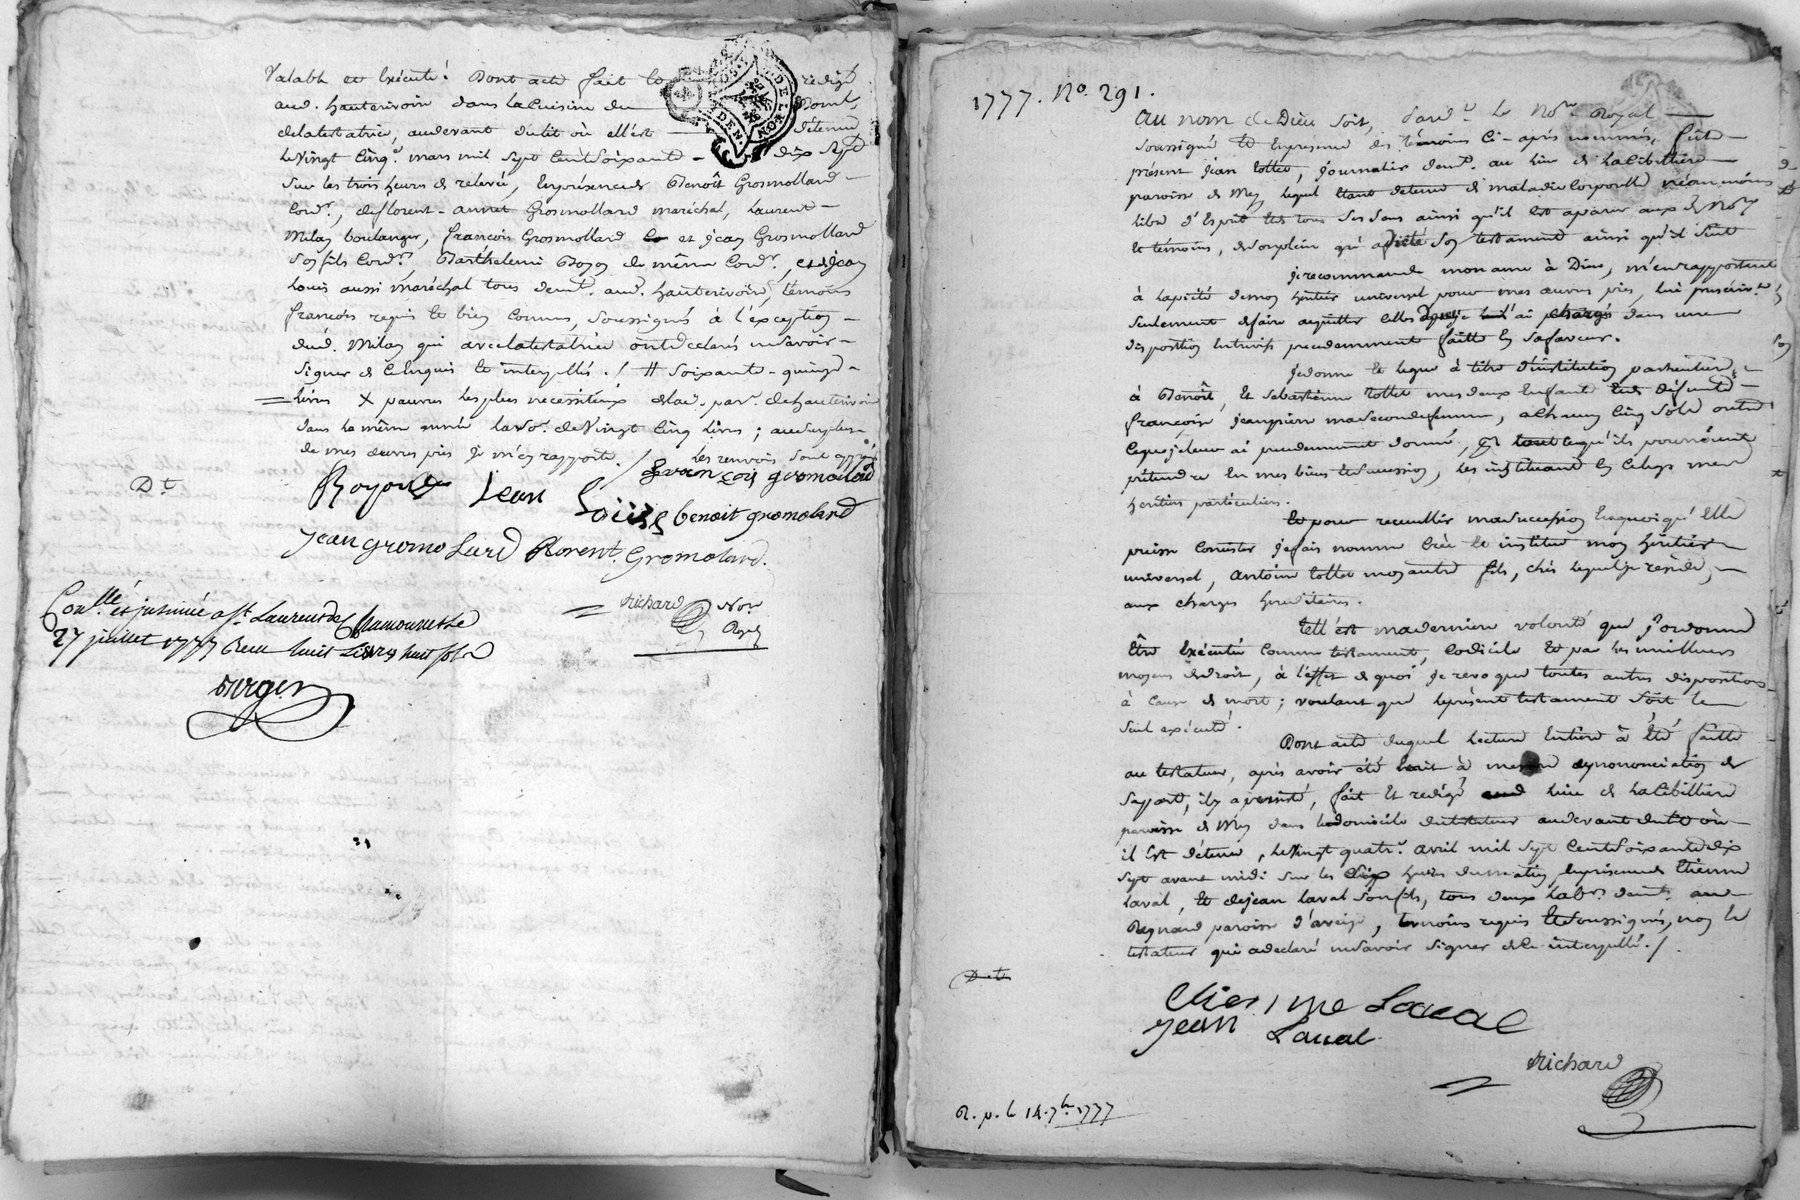 Valable et Exécuté! Dont acte fait et rédigé
aud. hauterivoir dans la Cuisine du domile
de la testatrice, audevant du lit où ell'est détenue
le Vingt Cinq.e mars mil Sept Cent Soixante - dix Sept
Sur les trois heures de relevée, En présence de Benoît Grosmollard
Cord.r, de florent-annet Grosmollard maréchal, Laurent
Milan boulanger, françois Grosmollard et jean Grosmollard
Son fils Cord.rs, Barthelemi Boyon de même Cord.r, et de jean
Louis aussi maréchal tous demt. aud. hauterivoir, témoins
françois requis et bien connus, Soussignés à l'exception
dud. Milan qui avec la testatrice ont déclarés ne Savoir
Signer de Ce Enquis et interpellés ./ # Soixante-quinze
livres X pauvres les plus necessiteux de lad. par. de hauterivoir
dans la même année la so. de Vingt Cinq livres; au surplus
de mes œuvres pies je m'en rapporte. / les renvois Sont app.
Dt
Boyon Jean Louis françois gromolard
benoit gromolard
Jean gromolard florent Gromolard.
Richard Not.re
Royal
Con.llé et insinué a St. Laurent de Chamousset le
27 juillet 1777 Reçu huit Livres huit sols
1777. No. 291.
Au nom de Dieu Soit, Pardt. le No.re Royal
Soussigné et En presence des témoins Ci-après nommés, fût
présent jean Tottet, journalier demt. au lieu de la Cibilliere
paroisse de Mey lequel Etant detenu de maladie Corporelle néanmoins
libre d'Esprit et de tous Ses Sens ainsi qu'il est aparu aux d. No.re
et témoins, de Son plein gré a dicté Son testament ainsi qu'il Suit
je recommande mon ame à Dieu, m'en rapportant
à la piété de mon héritier universel pour mes œuvres pies, lui prescriv.t
Seulement de faire acquitter Celles dont je l'ai chargé dans une
disposition Entrevifs precedemment faitte En Sa faveur.
Je donne et legue à titre d'institution particuliere,
à Benoît, et Sébastienne Tottet mes deux Enfants de défunte
françoise jeanpierre ma Seconde femme, à Chacun Cinq Sols outre
Ce que je leur ai precedemment donné, Et tout Ce qu'ils pourroient
prétendre En mes biens et Succession, les instituant En Ce lieu mes
héritiers particuliers.
Et pour recueillir ma Succession En quoi qu'Elle
puisse Consister je fais nomme Crée et institue mon héritier
universel, Antoine Tottet mon autre fils, chés lequel je réside,
aux charges héréditaires.
Tell'est ma derniere volonté que j'ordonne
Être Exécutée Comme testament, Codicile et par les meilleurs
moyens de droit, à l'effet de quoi je revoque toutes autres dispositions
à Cause de mort; voulant que le présent testament Soit le
Seul exécuté.
Dont acte duquel lecture Entiere a été faitte
au testateur, après avoir été Ecrit à mesure de prononciation de
Sa part, il y a persisté, fait Et redigé aud lieu de la Cibilliere
paroisse de Mey dans le domicile du testateur audevant du lit où
il Est détenu, le Vingt quatr.e avril mil Sept Cent Soixante dix
Sept avant midi Sur les Six heures du matin, En présence de Etienne
Laval, et de jean Laval Son fils, tous deux Labrs demts. au
Reynard paroisse d'aveize, témoins requis Et Soussignés, non le
testateur qui a declaré ne Savoir Signer de Ce interpellé ./.
Dt
Etienne Laval
Jean Laval
Richard
R. p. le 14. 7bre. 1777